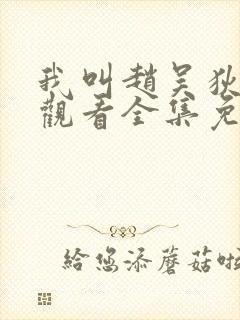 我叫趙吴狄
觀看全集免
給您添蘑菇啦